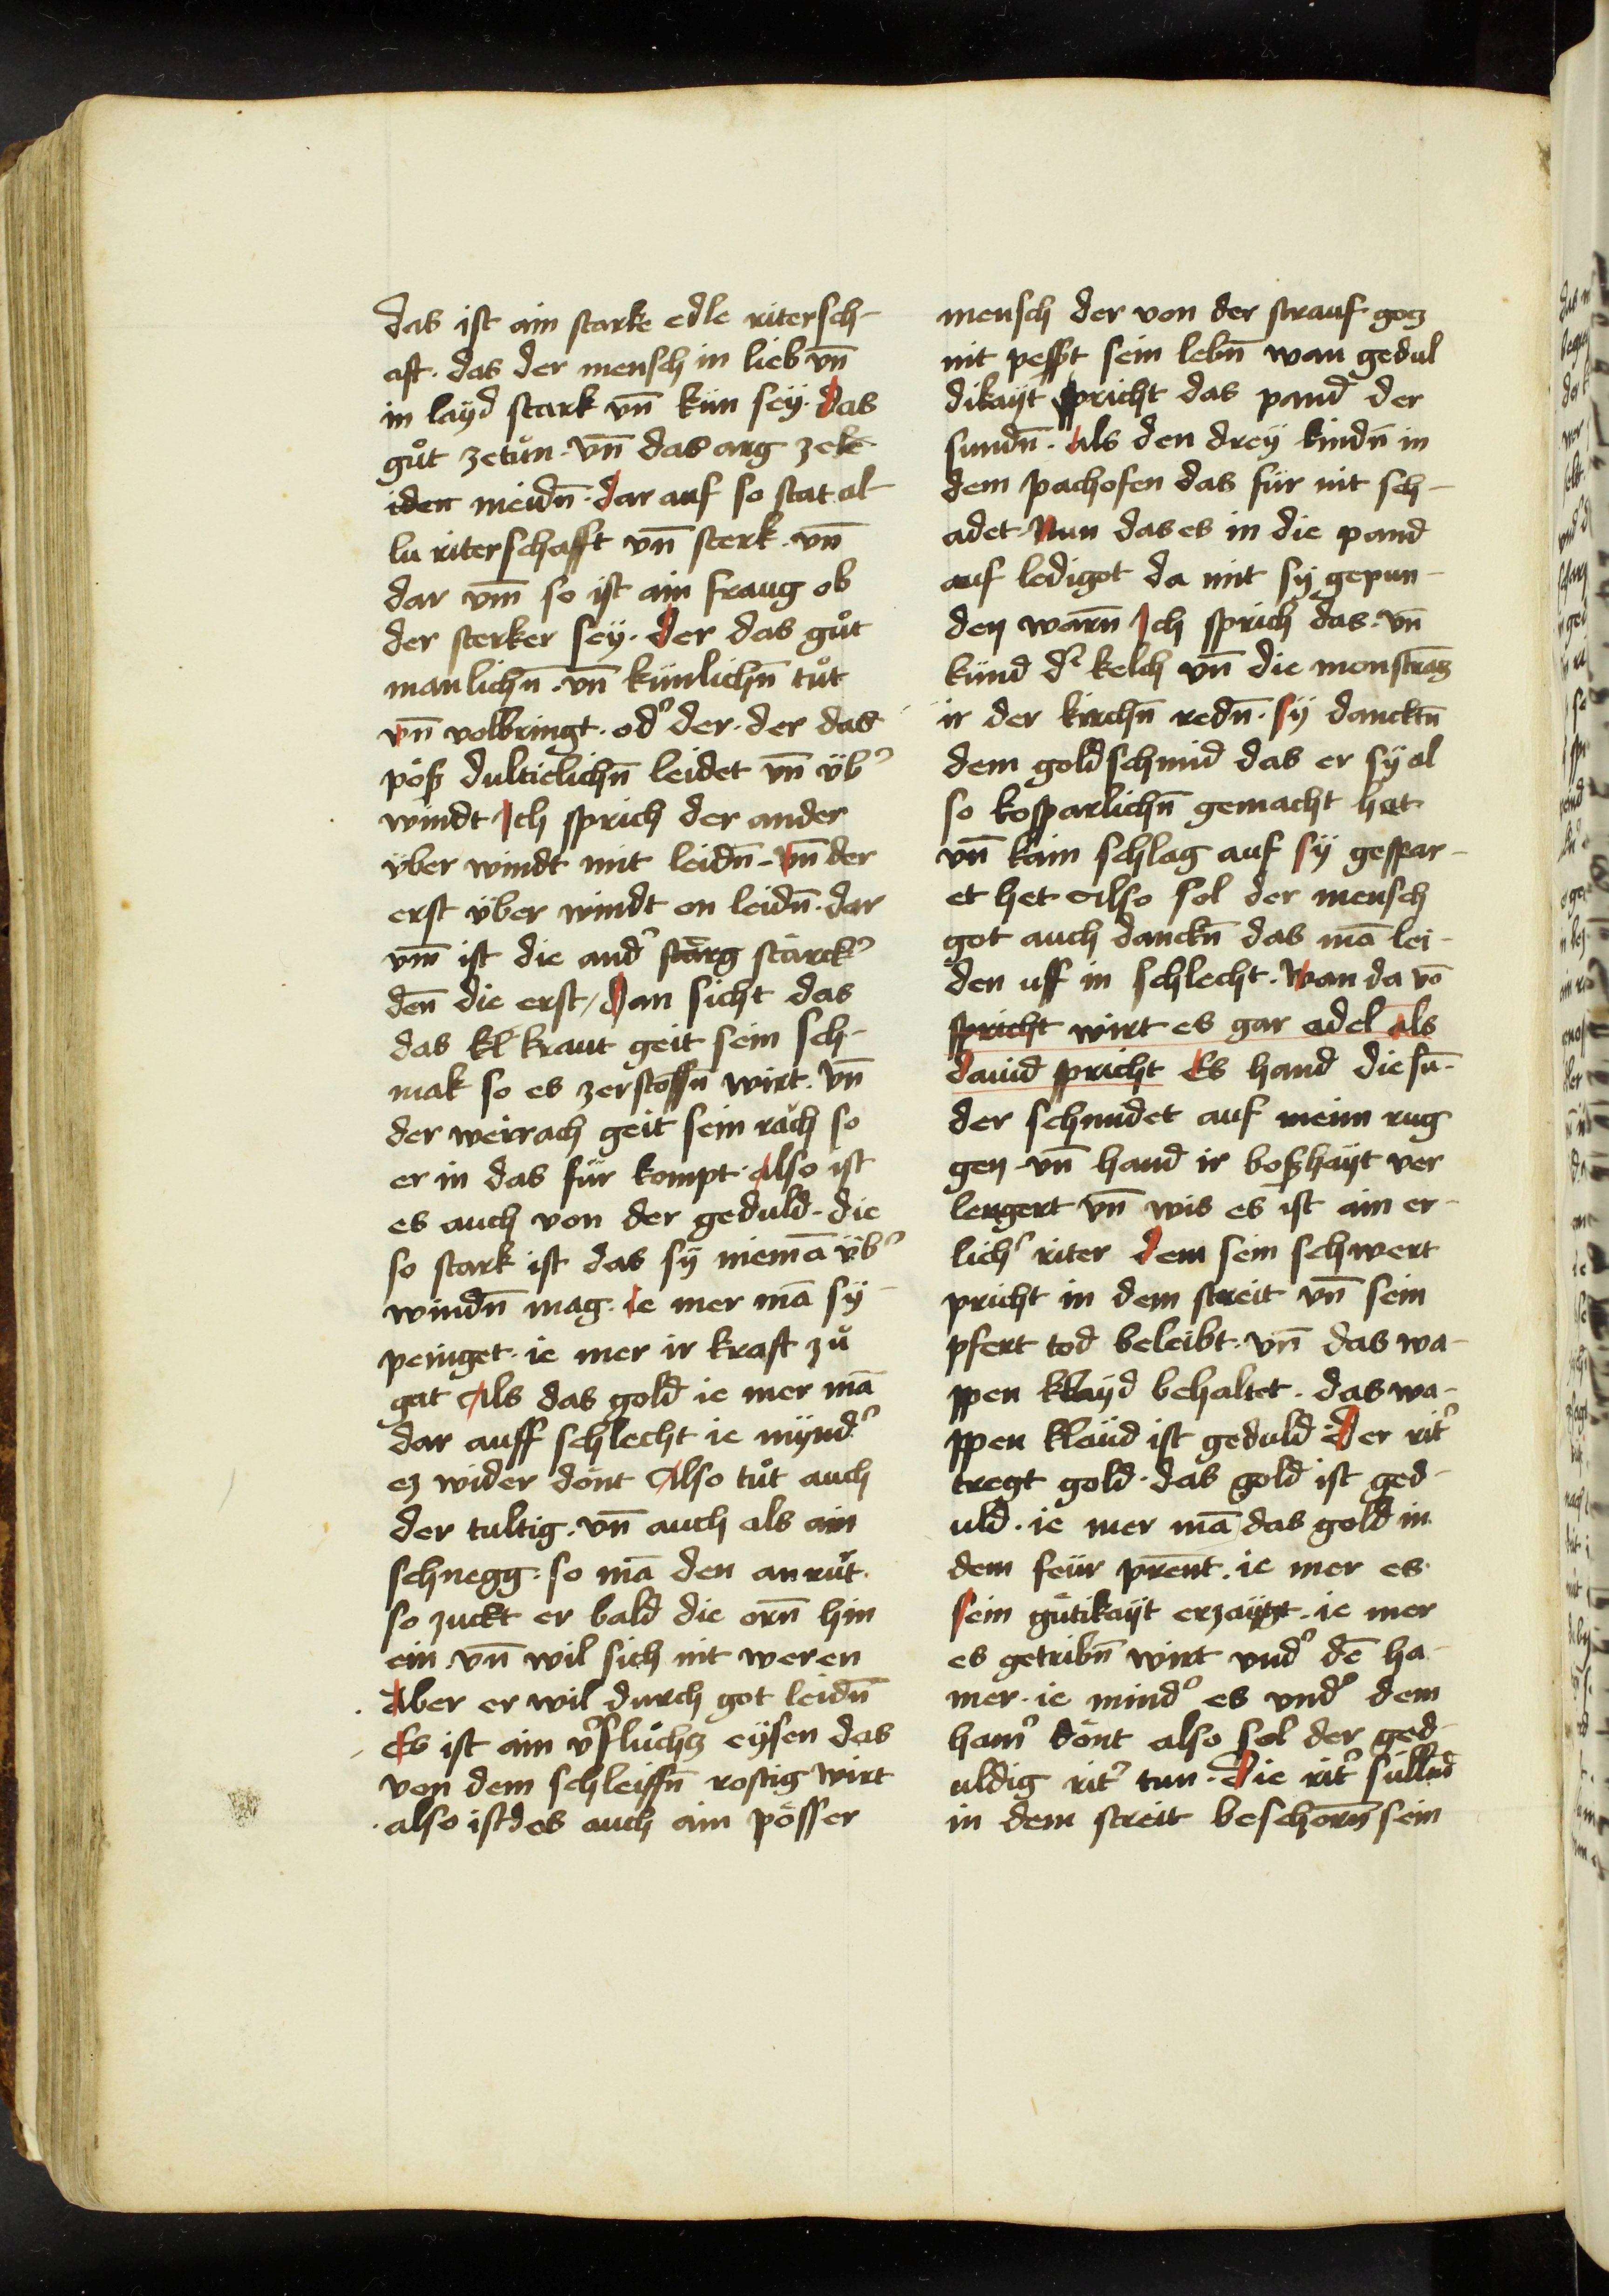 das ist ain starke edle ritersch-
aft. das der mensch in lieb vn̄
in layd stark vn̄ kün sey. Das
gůt zetůn. vn̄ das arg zele-
iden meidn̄. dar auf so stat al-
lu riterschafft vn̄ sterk. vn̄
dar vm̄ so ist ain fraug ob
der sterker sey. der das gůt
manlichn̄. vn̄ künlichn̄ tůt
vn̄ volbringt. od' der. der das
pöß dulticlichn̄ leidet vn̄ üb'
windt Ich sprich der ander
über windt mit leidn̄. vn̄ der
erst über windt on leidn̄. dar
vm̄ ist die and' stärg stärck'
den̄ die erst / Dan sicht das
das kl kraut geit sein sch-
mak so es zerstossn̄ wirt. vn̄
der weirach geit sein räch so
er in das für kompt. also ist
es auch von der geduld. die
so stark ist das sy niemā üb'
windn̄ mag. ie mer mā sy
peinget. ie mer ir kraft zů
gat Als das gold ie mer mā
dar auff schlecht ie mynd'
ez wider dönt Also tůt auch
der tultig. vn̄ auch als ain
schnegg. so mā den an růt.
so zuckt er bald die orn̄ hin
ein. vn̄ wil sich nit weren
Aber er wil durch got leidn̄
Es ist ain v'flůchtz eysen das
von dem schleiffn̄ rostig wirt
also ist des auch ain pösser
mensch der von der strauf gotz
nit pessrt sein lebn̄ wan gedul
dikayt pricht das pand der
sundn̄. Als den drey kindn̄ in
dem pachofen das für nit sch-
adet. Nun das es in die pand
auf ledigot da mit sy gepun-
den warn̄ Ich sprich das. vn̄
künd d' kelch vn̄ die monstrātz
ir der kirchn̄ redn̄. sy danckn̄
dem goldschmid das er sy al
so kosparlichn̄ gemacht het
vn̄ kain schlag auf sy gespar-
et het Also sol der mensch
got auch danckn̄ das mā lei-
den uff in schlecht. Wan da vō
spricht wirt es gar edel als
dauid spricht Es hand die sū-
der schmidet auf meim rug
gen. vn̄ hand ir boßhayt ver
lengert vn̄ wis es ist ain er-
lich' riter dem sein schwert
pricht in dem streit vn̄ sein
pfert tod beleibt. vn̄ das wa-
ppen klayd behaltet. das wa-
ppen klaid ist geduld Der rit'
tregt gold. das gold ist ged-
uld. ie mer mā das gold in
dem feür prent. ie mer es
sein gütikayt erzaygt. ie mer
es getribn̄ wirt vnd' dē ha-
mer. ie mind' es vnd' dem
ham' dönt also sol der ged-
uldig rit' tun. Die rit' sülln̄d
in dem streit beschorn̄ sein